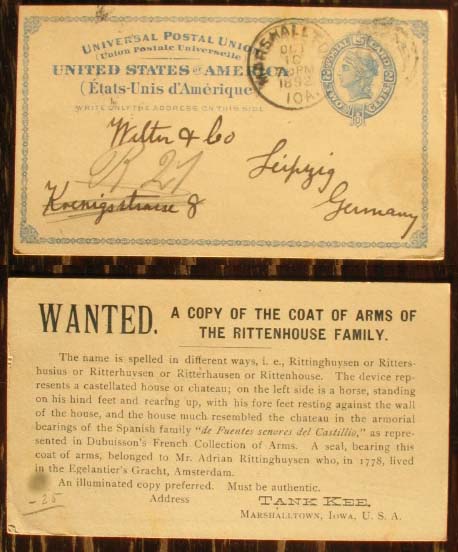 UNIVERSAL POSTAL UNION
(Union Postale Universelle)
UNITED STATES OF AMERICA.
(États-Unis d'Amérique)
WRITE ONLY THE ADDRESS ON THIS SIDE
MARSHALLTO
OCT
PM
189
IOA.
POSTAL CARD
TWO CENTS
& Co
R 21
Leipzig
Koenigsstrasse 8
Germany
WANTED. A COPY OF THE COAT OF ARMS OF
THE RITTENHOUSE FAMILY.
The name is spelled in different ways, i. e., Rittinghuysen or Ritters-
husius or Ritterhuvsen or Ritterhausen or Rittenhouse. The device rep-
resents a castellated house or chateau; on the left side is a horse, standing
on his hind feet and rearing up, with his fore feet resting against the wall
of the house, and the house much resembled the chateau in the armorial
bearings of the Spanish family "de Fuentes senores del Castillio," as repre-
sented in Dubuisson's French Collection of Arms. A seal, bearing this
coat of arms, belonged to Mr. Adrian Rittinghuysen who, in 1778, lived
in the Egelantier's Gracht, Amsterdam.
An illuminated copy preferred. Must be authentic.
Address TANK KEE.
MARSHALLTOWN, IOWA, U. S. A.
-25